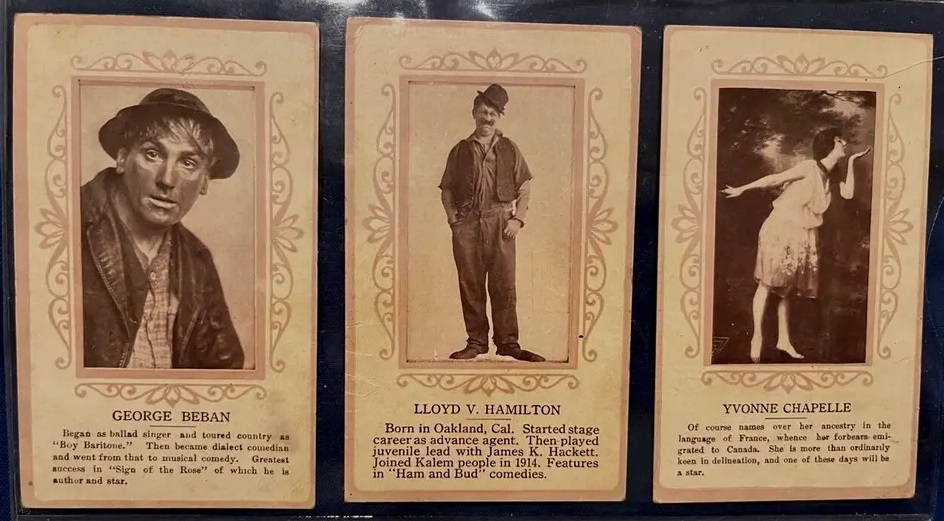 GEORGE BEBAN
Began as ballad singer and toured country as
"Boy Baritone." Then became dialect comedian
and went from that to musical comedy. Greatest
success in "Sign of the Rose" of which he is
author and star.
LLOYD V. HAMILTON
Born in Oakland, Cal. Started stage
career as advance agent. Then played
juvenile lead with James K. Hackett.
Joined Kalem people in 1914. Features
in "Ham and Bud" comedies.
YVONNE CHAPELLE
Of course names over her ancestry in the
language of France, whence her forbears emi-
grated to Canada. She is more than ordinarily
keen in delineation, and one of these days will be
a star.